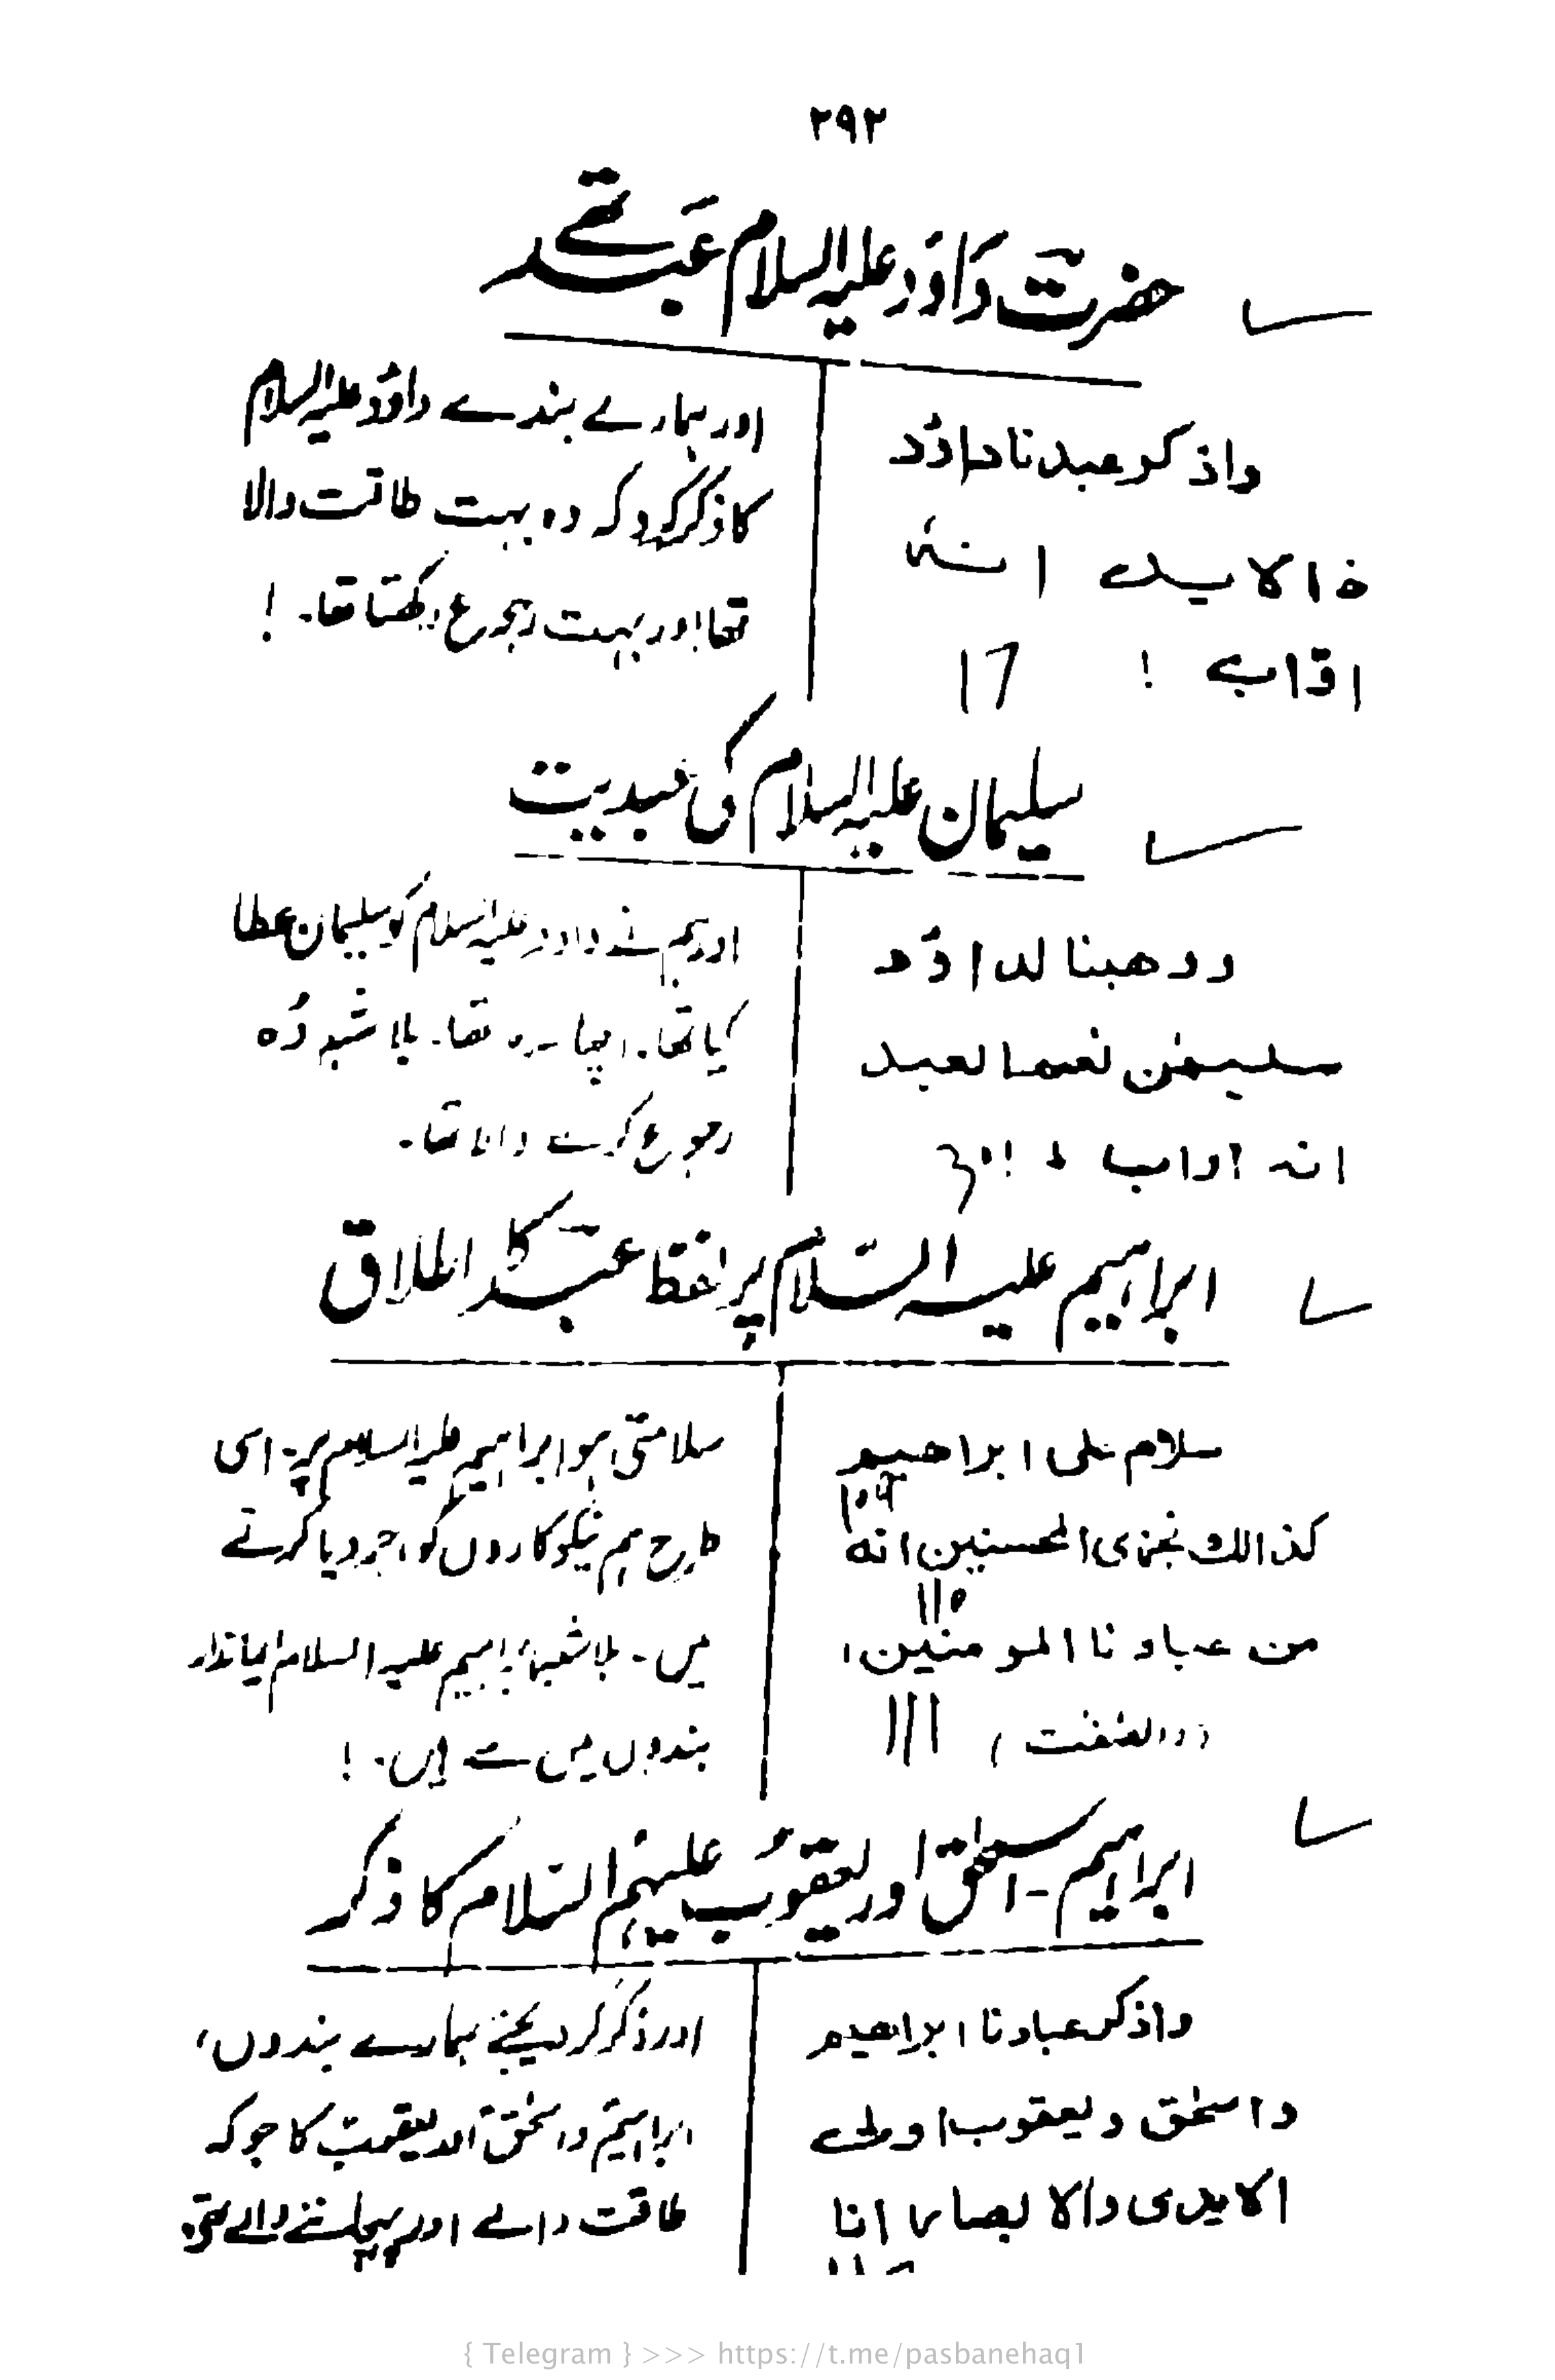 ۲۹۲
حضرت داؤد علیہ السلام عبد تھے
واذکر عبدنا داؤد
ذالاید انہٗ
اوّاب ! 17
اور ہمارے بندے داؤد علیہ السلام
کا ذکر کرو کہ وہ بہت طاقت والا
تھا اور بہت رجوع رکھتا تھا۔ !
سلیمان علیہ السلام کی عبدیت
ووهبنا لداؤد
سلیمٰن نعم العبد
انہ اواب !
اور ہم نے داود علیہ السلام کو سلیمان عطا
کیا تھا۔ اچھا بندہ تھا۔ بلا شبہ وُہ
رجوع کرنے والا تھا۔
ابراہیم علیہ السّلام پر لفظ عبد کا اطلاق
سلام علی ابراھیم
109
کذالک نجزی المحسنین انه
110
من عبادنا المومنین،
(والصّٰفّٰت) 111
سلامتی ہو ابراہیم علیہ السلام پر۔ اسی
طرح ہم نیکو کاروں کو اجر دیا کرتے
ہیں۔ بلا شبہ ابراہیم علیہ السلام ایماندار
بندوں میں سے ہیں۔ !
ابراہیم - اسحٰق اور یعقوبؑ علیہم السّلام کا ذکر
واذکر عبادنا ابراھیم
واسحٰق ویعقوب اولی
الایدی والابصار انا
اور ذکر کر دیجئے ہمارے بندوں،
ابراہیمؑ واسحٰقؑ اور یعقوبؑ کا جو کہ
طاقت والے اور پہچاننے والے تھے۔
{ Telegram } >>> https://t.me/pasbanehaq1